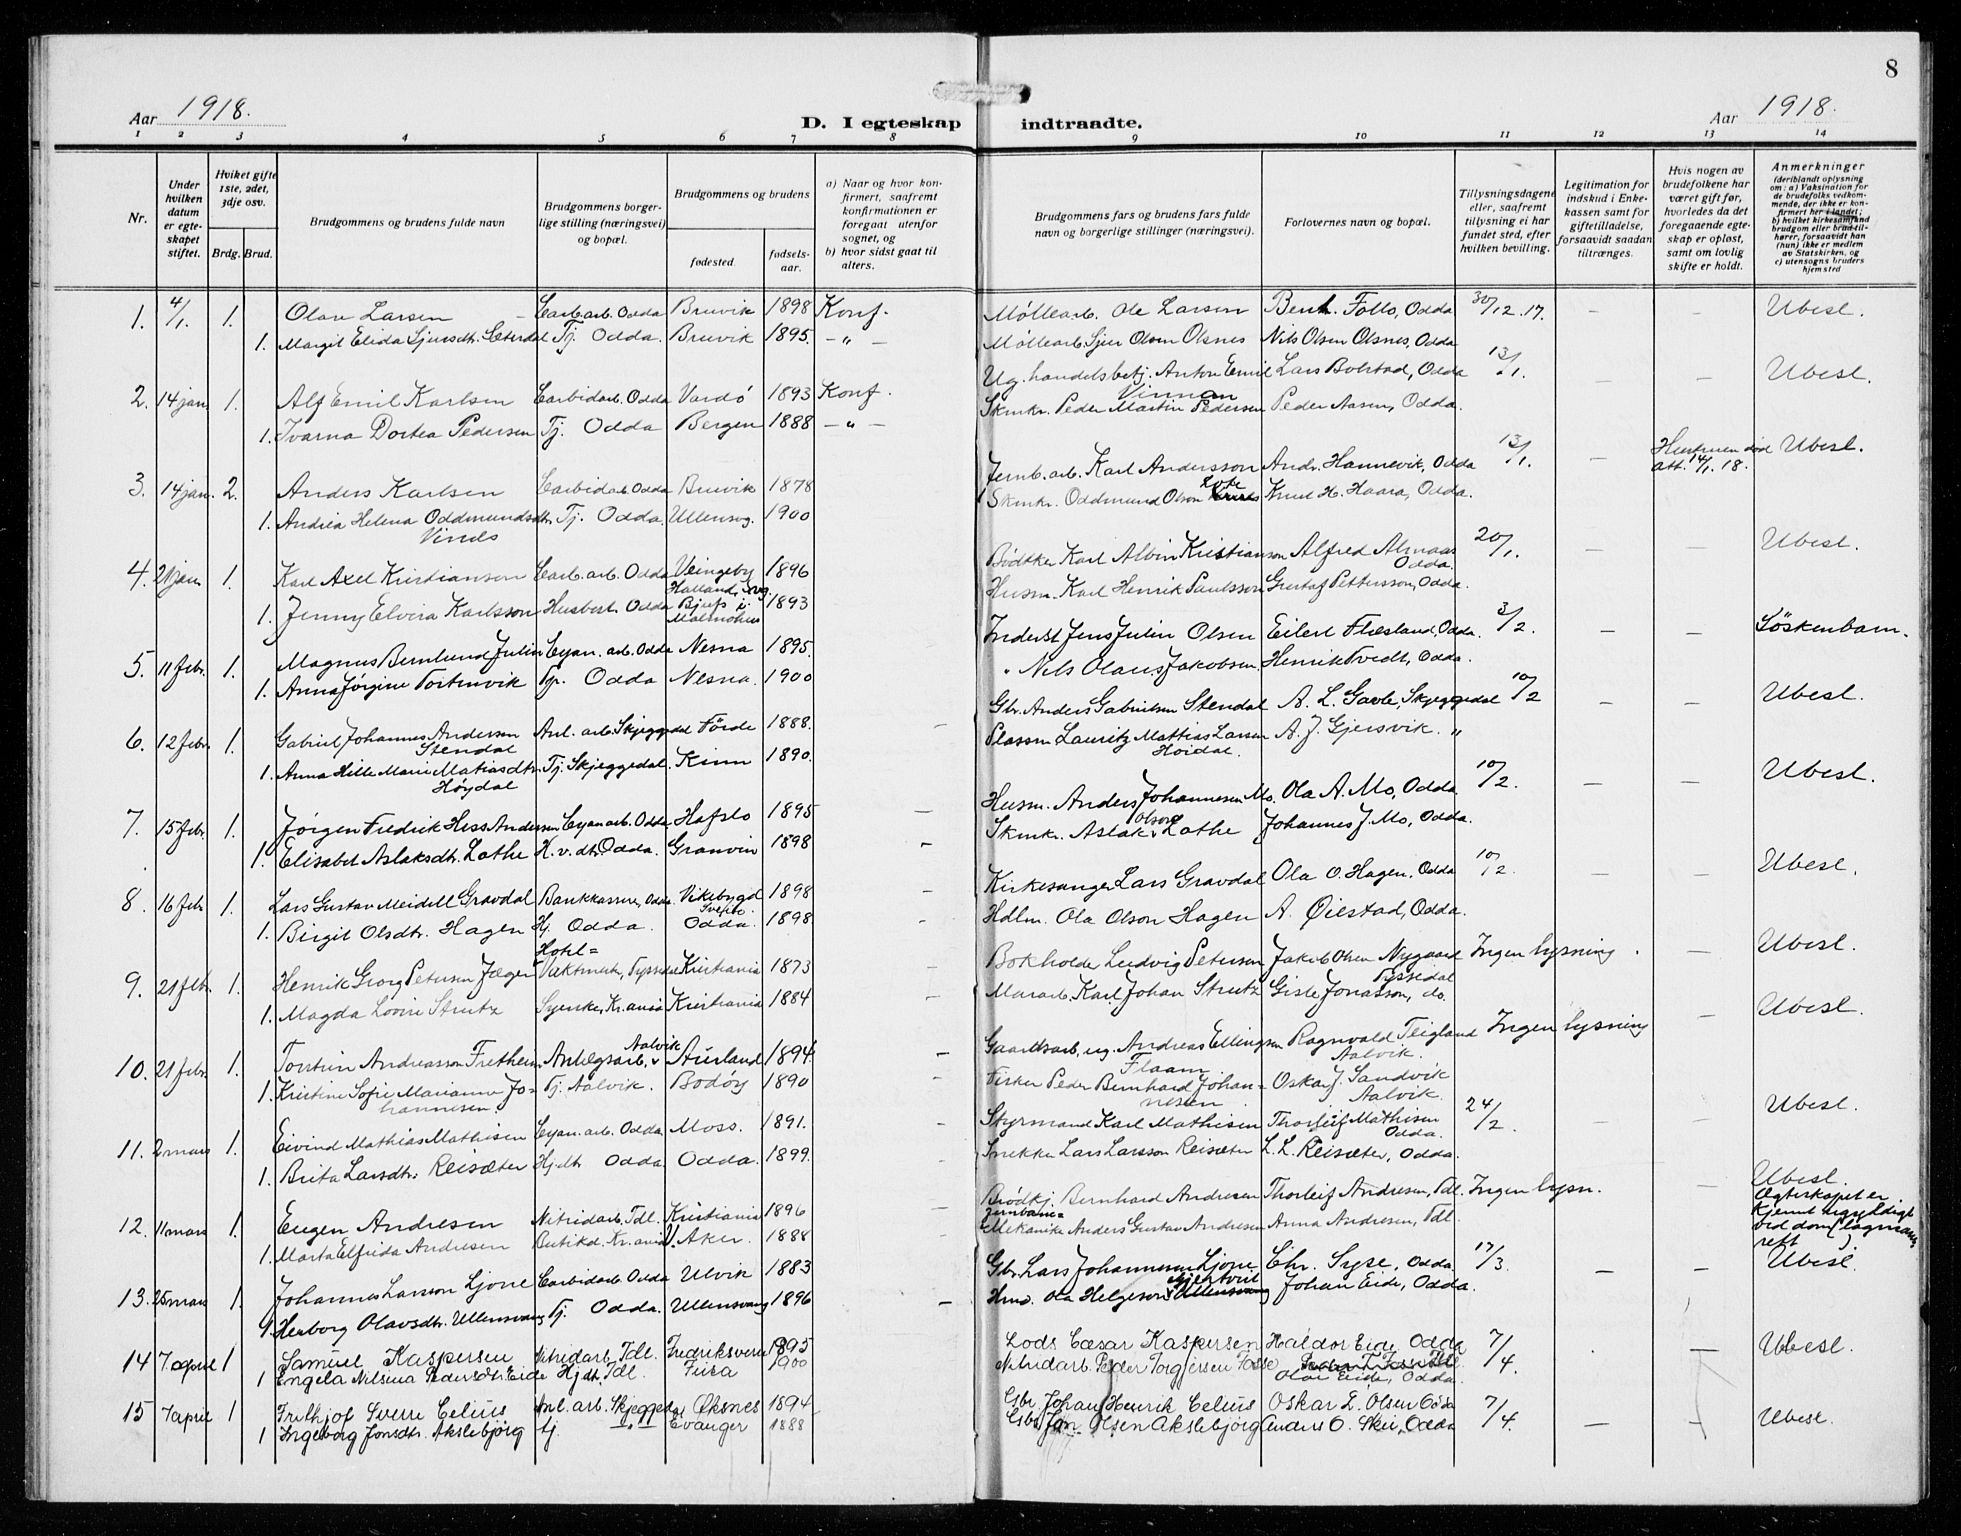 8
Aar 1918.
D. I egteskap indtraadte.
Aar 1918.
1 2 3 4 5 6 7 8 9 10 11 12 13 14
Nr.
Under hvilken datum er egteskapet stiftet.
Hviket gifte 1ste, 2det, 3dje osv.
Brdg. Brud.
Brudgommens og brudens fulde navn
Brudgommens borgerlige stilling (næringsvei) og bopæl.
Brudgommens og brudens
fødested.
fødselsaar.
a) Naar og hvor konfirmert, saafremt konfirmationen er foregaat utenfor sognet, og
b) hvor sidst gaat til alters.
Brudgommens fars og brudens fars fulde navn og borgerlige stillinger (næringsvei).
Forlovernes navn og bopæl.
Tillysningsdagene eller, saafremt tillysning ei har fundet sted, efter hvilken bevilling.
Legitimation for indskud i Enkekassen samt for giftetilladelse, forsaavidt saadan tiltrænges.
Hvis nogen av brudefolkene har været gift før, hvorledes da det foregaaende egteskap er opløst, samt om lovlig skifte er holdt.
Anmerkninger
(deriblandt oplysning om: a) Vaksination for de brudefolks vedkommende, der ikke er konfirmert her i landet; b) hvilket kirkesamfund brudgom eller brud tilhører, forsaavidt han (hun) ikke er medlem av Statskirken, og c) utensogns bruders hjemsted
1. 4/1. 1. Olav Larsen Carb.arb. Odda Bruvik 1898 Konf. Møllearb. Ole Larsen Bent. Follo, Odda 30/12.17. – – Ubesl.
1. Margit Elida Sjursdtr. Tj. Odda. Bruvik 1895. – " – Møllearb. Sjur Olsen Olsnes Nils Olsen Olsnes, Odda
2. 14 jan. 1. Alf Emil Karlsen Carbidarb. Odda Vardö 1893 Konf. Ug. handelsbetj. Anton Emil Vinnan Lars Bolstad, Odda 13/1. – – Ubesl.
1. Ivarna Dortea Pedersen Tj. Odda Bergen 1888 – " – Skmkr. Peder Martin Pedersen Peder Aasen, Odda.
3. 14 jan. 2. Anders Karlsen Carbidarb. Odda Bruvik 1878 Jernb. arb. Karl Andersson Andr. Hannevik, Odda 13/1. – Hustruen død att. 14/1. 18. Ubesl.
1. Andrea Helena Oddmundsdtr. Vines Tj. Odda. Ullensvg. 1900 Skmkr. Oddmund Olson Knut H. Haara, Odda.
4. 21 jan. 1. Karl Axel Kristianson Carb. arb. Odda Veingeby Halland, Svg. 1896 Bödtker Karl Albin Kristianson Alfred Almaas Odda. 20/1. – – Ubesl.
1. Jenny Elvira Karlsson Husbest. Odda Bjufs i Malmöhus 1893 Husm. Karl Henrik Paulsson Gustaf Pettersson, Odda.
5. 11 febr. 1. Magnus Bernlund Julin Cyan. arb. Odda Nesna 1895. Inderst Jens Julin Olsen Eilert Flæsland, Odda. 3/2. – – Söskenbarn.
1. Anna Jörgine Tortenvik Tj. Odda Nesna. 1900 " Nils Olaus Jakobsen. Henrik Tvedt, Odda.
6. 12 febr. 1. Gabriel Johannes Andersen Stendal Anl. arb. Skjeggedal Förde 1888. – Gbr. Anders Gabrielsen Stendal A. L. Gavle, Skjeggedal 10/2 – – Ubesl.
1. Anna Hille Marie Matiasdtr. Höydal Tj. Skjeggedal. Kinn 1890. Plassm Lauritz Mattias Larsen Höidal. A. J. Gjersvik. "
7. 15 febr. 1. Jörgen Fredrik Hess Andersen Cyan arb. Odda Hafslo 1895 – Husm. Anders Johannesen Mo. Ola A. Mo, Odda 10/2. – – Ubesl.
1. Elisabet Aslaksdtr. Lothe H. v. dtr. Odda. Granvin 1898 – Skmkr. Aslak Olson Lothe Johannes J. Mo, Odda.
8. 16 febr 1. Lars Gustav Meidell Gravdal Bankkasserer, Odda Vikebygd 1898 – Kirkesanger Lars Gravdal Ola O. Hagen, Odda 10/2. – – Ubesl.
1. Birgit Olsdtr. Hagen Hj. Odda. Odda. 1898 Hdlm. Ola Olson Hagen A. Öiestad, Odda.
9. 21 febr. 1. Henrik Georg Petersen Jæger Hotel= Vaktmester, Tyssedal Kristiania 1873 – Bokholder Ludvig Petersen Jakob Olsen Nygaard Tyssedal Ingen lysning. – Ubesl.
1. Magda Lovise Strutz Syerske, Kr.ania Kristiania 1884 – Murarb. Karl Johan Strutz Gisle Jonasson, do.
10. 21 febr. 1. Torstein Andreasson Fretheim Anlægsarb. Aalvik Aurland 1894. – Gaardsarb, ug. Andreas Ellingsen Flaam Ragnvald Teigland Aalvik. Ingen lysning – Ubesl.
1. Kristine Sofie Marianne Johannesen. Tj. Aalvik. Bodöy 1890 Fisker Peder Bernhard Johannesen Oskar J. Sandvik Aalvik.
11. 2 mars 1. Eivind Mathias Mathisen Cyan. arb. Odda. Moss. 1891. – Styrmand Karl Mathisen Thorleif Mathisen Odda. 24/2. – – Ubesl.
1. Brita Larsdtr. Reisæter Hjdtr Odda. Odda. 1899. Snekker Lars Larsson Reisæter L. L. Reisæter, Odda.
12. 11 mars 1. Eugen Andresen Nitridarb. Tdl. Kristiania 1896 Brödkj. Bernhard Andresen Thorleif Andresen, Tdl. Ingen lysn. – Ubesl. Ægteskapet er kjennt ugyldigt ved dom (lagmannsrett ).
1. Marta Elfrida Andresen Butikd. Kr.ania V. Aker. 1888 Jernbane= Mekanike Anders Gustav Andresen Anna Andresen, Tdl.
13. 25 mars 1. Johannes Larsson Ljone Carbidarb. Odda Ulvik 1883 Gbr. Lars Johannesen Ljone Chr. Syse, Odda 17/3. – – Ubesl.
1. Herborg Olavsdtr. Ullensvang Tj. Odda. Ullensvang 1896 – Hmd. Ola Helgeson Ullensvang Johan Eide, Odda.
14 7 april 1 Samuel Kaspersen Nitridarb. Tdl. Fredriksvern 1895 Lods Cæsar Kaspersen Haldor Eide Odda 7/4. – Ubesl.
1 Engela Nilsina Pedersdtr. Eide Hjdt. Tdl. Fusa 1900 Nitridarb. Peder Torgjersen Tosse Olav Eide, Odda.
15 7 april 1 Fritjof Sverre Celius Anl. arb. Skjeggedal Øksnes 1894 Gbr. Johan Henrik Celius Oskar L. Olsen Odda 7/4. – – Ubesl.
1 Ingeborg Jonsdtr. Akslebjörg tj. – " – Evanger 1888 Gbr. Jon Olsen Akslebjörg Anders O. Skei, Odda